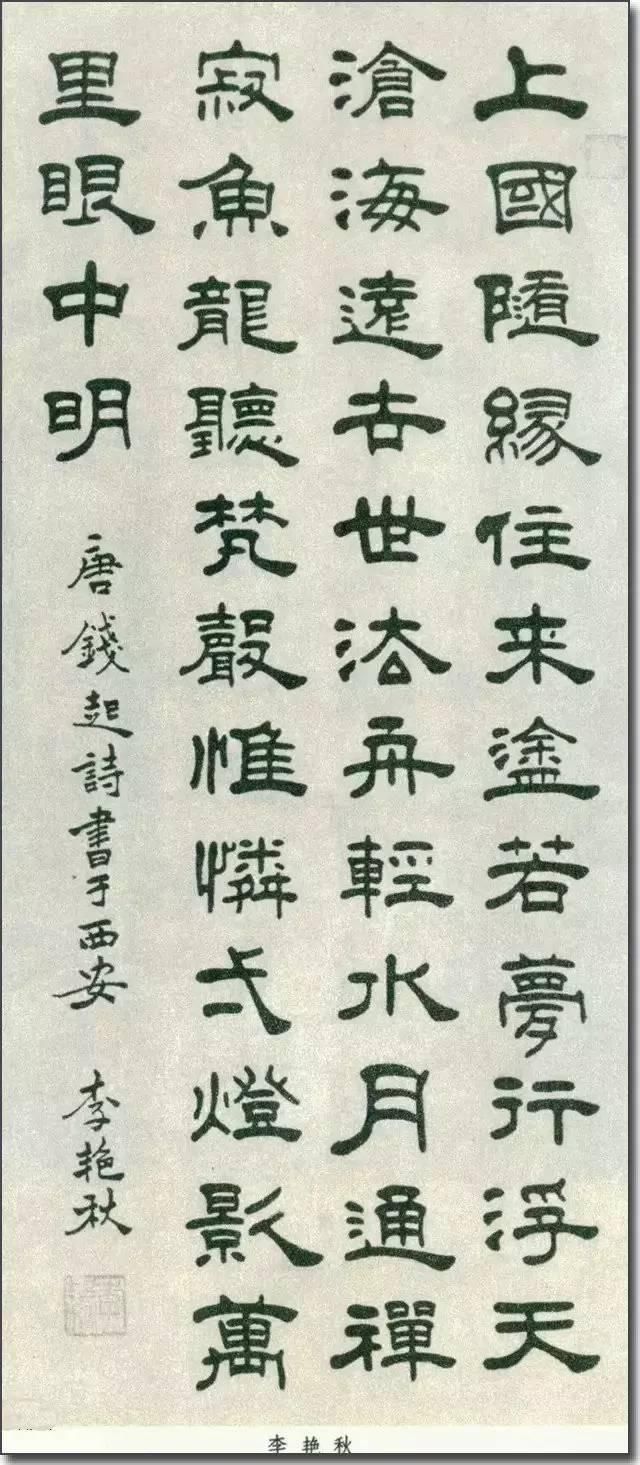 上國隨緣住来塗若夢行浮天
滄海遠去世法舟輕水月通禪
寂魚龍聽梵聲惟憐弌燈影萬
里眼中明
唐錢起詩書于西安 李艳秋
李艳秋